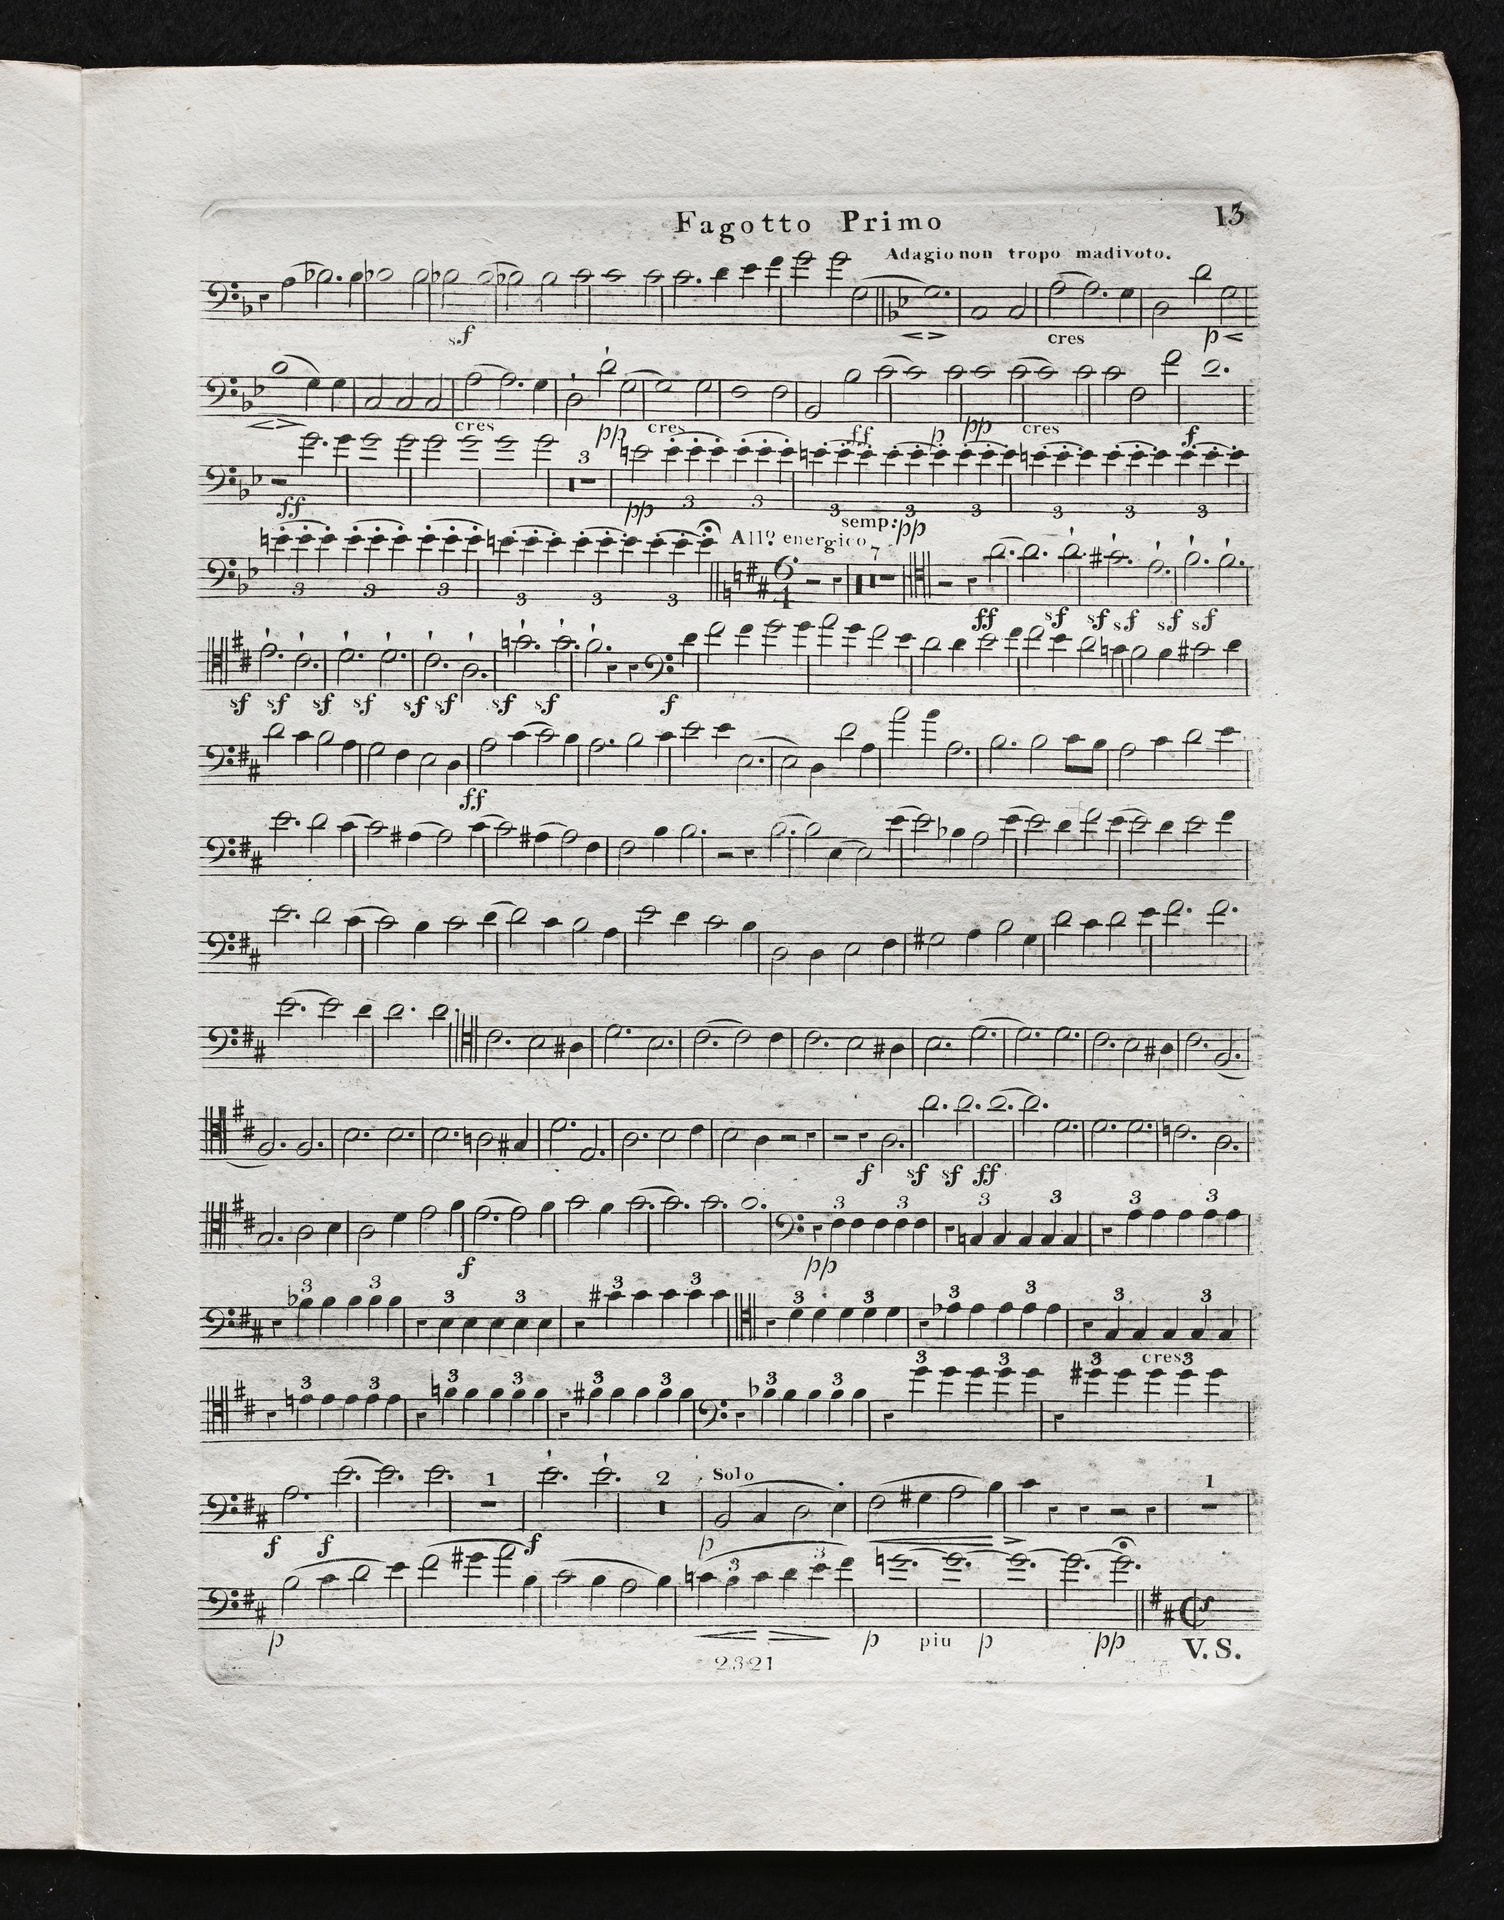 Fagotto Primo
13
Adagio non tropo madivoto.
sf
cres
p
cres
pp
cres
ff
p
pp
cres
f
3
ff
pp
3 3 3 3 3 3 3 3
semp: pp
Allo. energico
7
6
4
3 3 3 3 3 3
ff sf sf sf sf sf
sf sf sf sf sf sf sf sf f
ff
f sf sf ff
3 3 3 3 3 3
f pp
3 3 3 3 3 3 3 3 3 3 3 3
cres
3 3 3 3 3 3 3 3 3 3 3 3
1 2 Solo 1
f f f p
3 3
p p piu p pp V. S.
2321